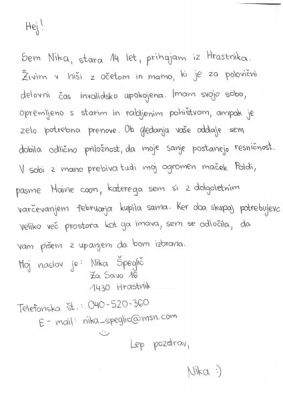 Hej!
Sem Nika, stara 14 let, prihajam iz Hrastnika.
Živim v hiši z očetom in mamo, ki je za polovični
delovni čas invalidsko upokojena. Imam svojo sobo,
opremljeno s starim in rabljenim pohištvom, ampak je
zelo potrebna prenove. Ob gledanju vaše oddaje sem
dobila odlično priložnost, da moje sanje postanejo resničnost.
V sobi z mano prebiva tudi moj ogromen maček Poldi,
pasme Maine coon, katerega sem si z dolgoletnim
varčevanjem februarja kupila sama. Ker oba skupaj potrebujeva
veliko več prostora kot ga imava, sem se odločila, da
vam pišem z upanjem da bom izbrana.
Moj naslov je: Nika Špeglič
Za Savo 16
1430 Hrastnik
Telefonska št.: 040-520-360
E-mail: nika_speglic@msn.com
Lep pozdrav,
Nika :)